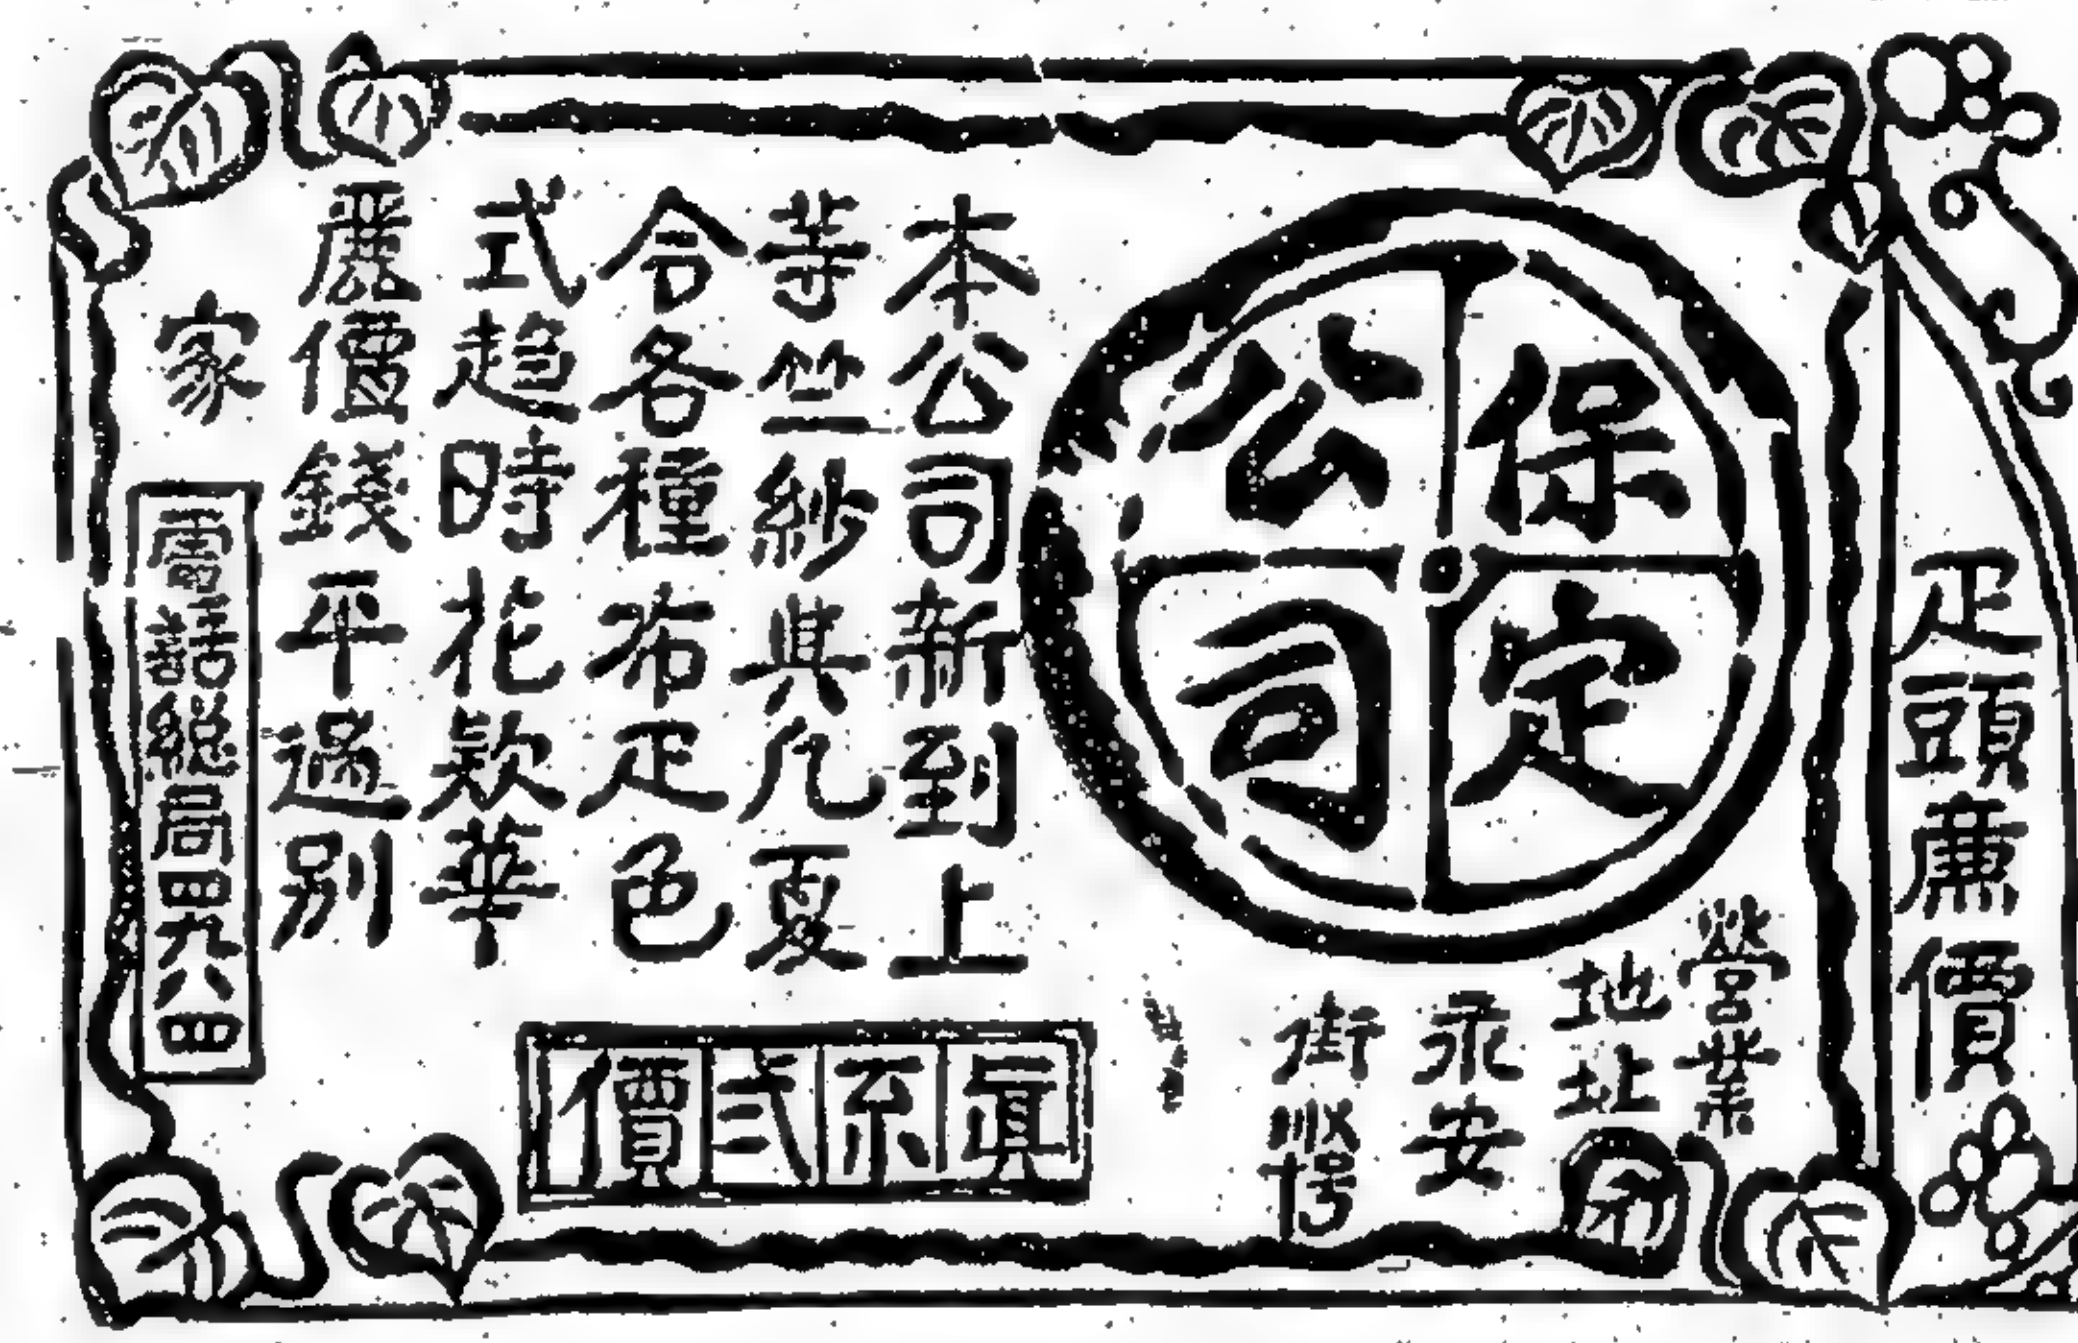 疋頭廉價
保定
公司
營業
地址
永安
街
本公司新到上
等竺紗其凡夏
令各種布疋色
式趋時花欵華
麗價錢平過別
家
真系弍價
電話總局四九八四